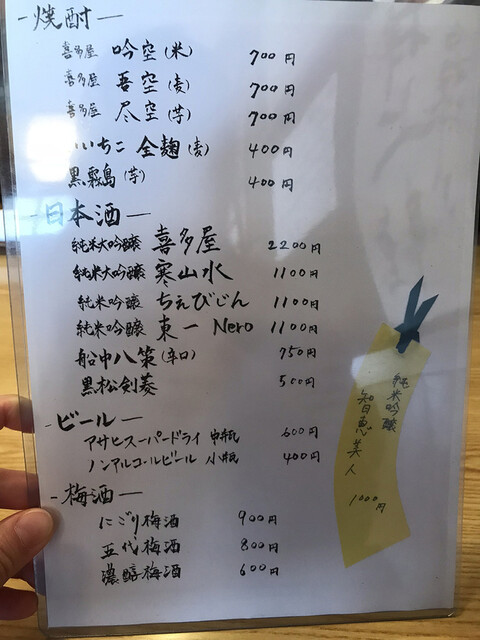 -焼酎-
喜多屋 吟空(米) 700円
喜多屋 吾空(麦) 700円
喜多屋 尽空(芋) 700円
いいちこ 全麹(麦) 400円
黒霧島(芋) 400円
-日本酒-
純米大吟醸 喜多屋 2200円
純米大吟醸 寒山水 1100円
純米吟醸 ちえびじん 1100円
純米吟醸 東一 Nero 1100円
船中八策(辛口) 750円
黒松剣菱 500円
-ビール-
アサヒスーパードライ 中瓶 600円
ノンアルコールビール 小瓶 400円
-梅酒-
にごり梅酒 900円
五代梅酒 800円
濃醇梅酒 600円
純米吟醸
智恵美人
1000円